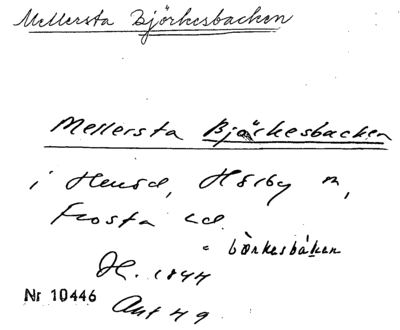 Mellersta Björkesbacken
Mellersta Björkesbacken
i Huså, Hörby sn,
Frosta hd.
börkesbáken
H. 1844
Nr 10446
Ant 49